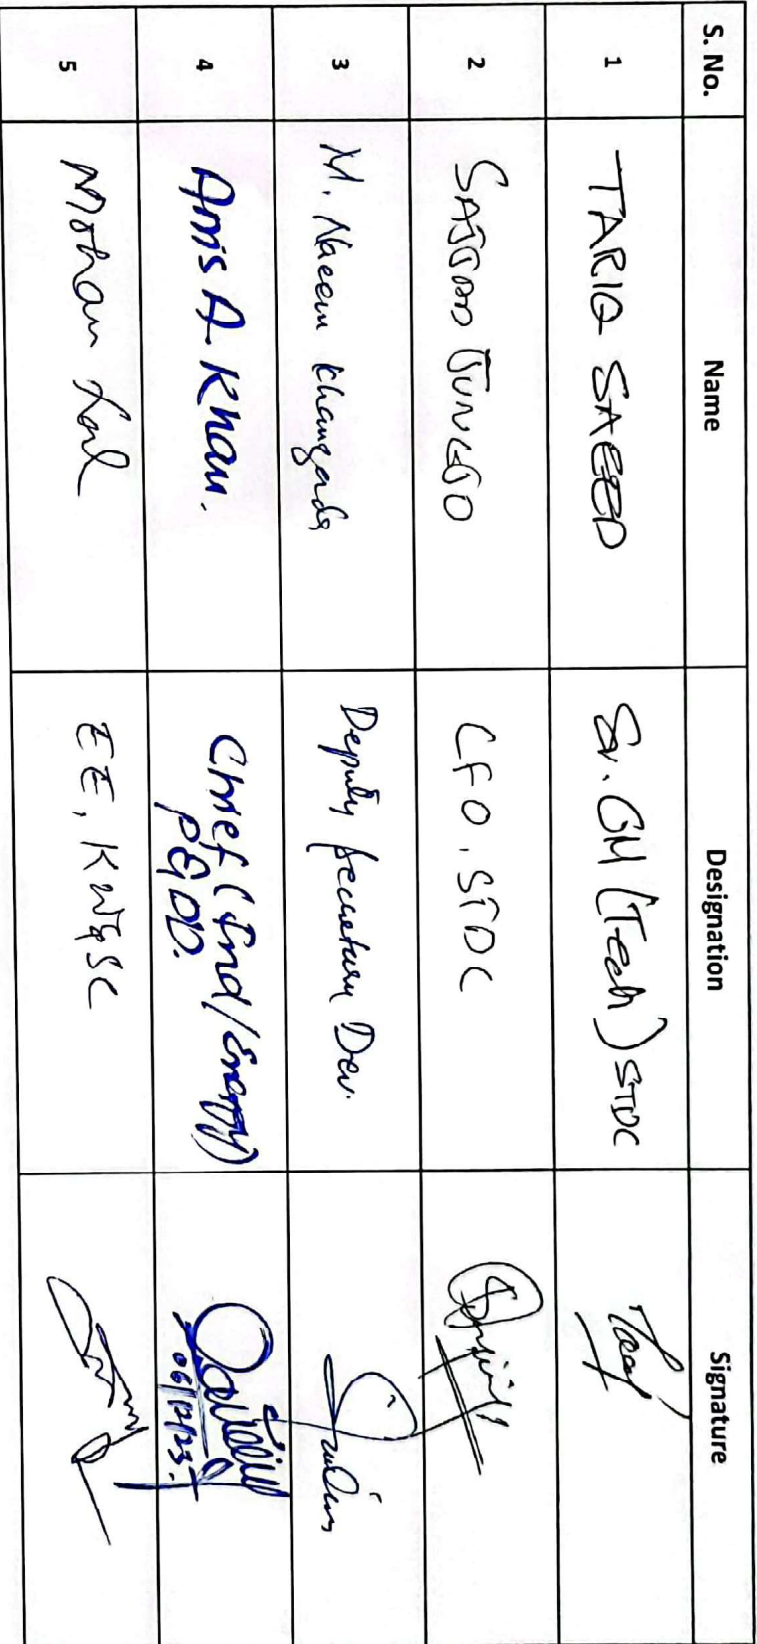 S. No. Name Designation Signature
1 TARIQ SAEED Sr. GM (Tech) STDC
2 SAJJAD JUNEJO CFO, STDC
3 M. Naeem Khanzada Deputy Secretary Dev.
4 Anis A Khan. Chief (Ind/Energy)
P&DD.
5 Mohan Lal EE, KW&SC